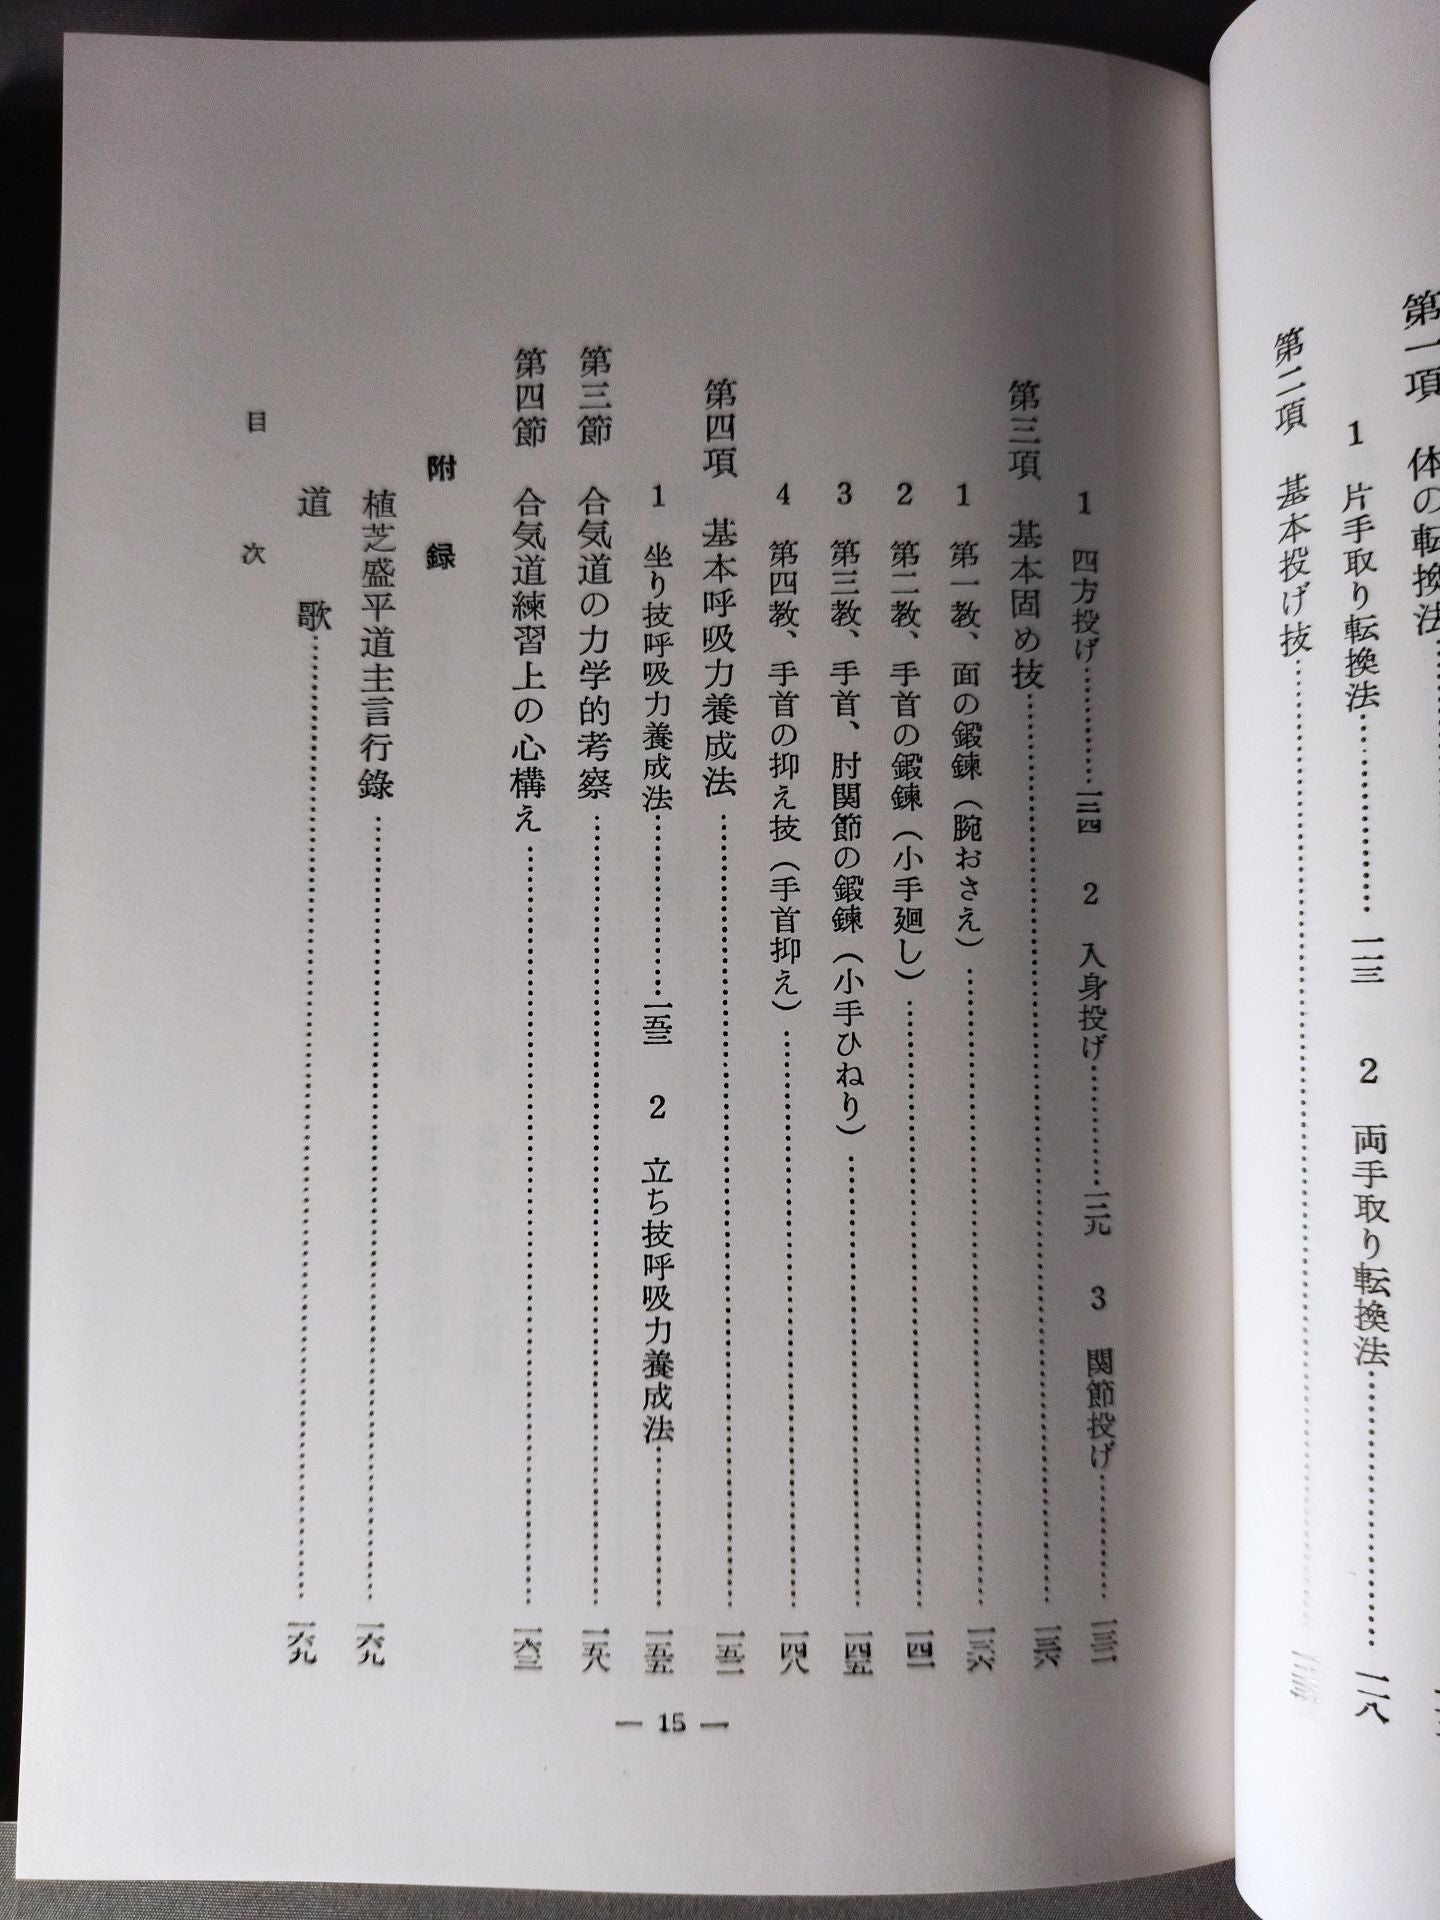 第一項　体の転換法……
1　片手取り転換法……一二三　2　両手取り転換法……一二八
第二項　基本投げ技……
1　四方投げ……一二四　2　入身投げ……一二九　3　関節投げ……一三二
第三項　基本固め技……一三六
1　第一教、面の鍛錬（腕おさえ）……一三六
2　第二教、手首の鍛錬（小手廻し）……一四一
3　第三教、手首、肘関節の鍛錬（小手ひねり）……一四五
4　第四教、手首の抑え技（手首抑え）……一四八
第四項　基本呼吸力養成法……一五二
1　坐り技呼吸力養成法……一五三　2　立ち技呼吸力養成法……一五五
第三節　合気道の力学的考察……一五八
第四節　合気道練習上の心構え……一六三
附　録
植芝盛平道主言行錄……一六九
道　歌……一六九
目　次
― 15 ―